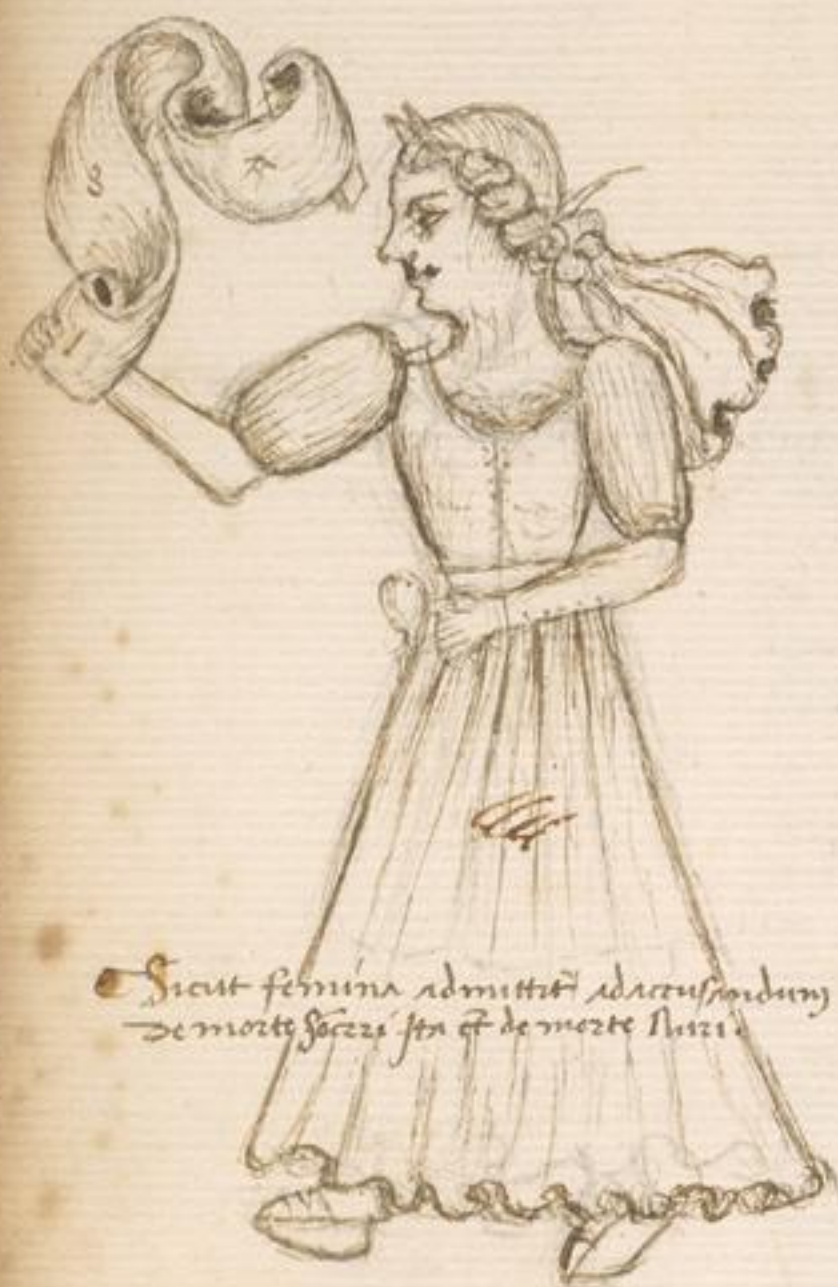 Sicut femina admittit̃ ad accusandum
de morte soceri ita et̃ de morte Nuri.